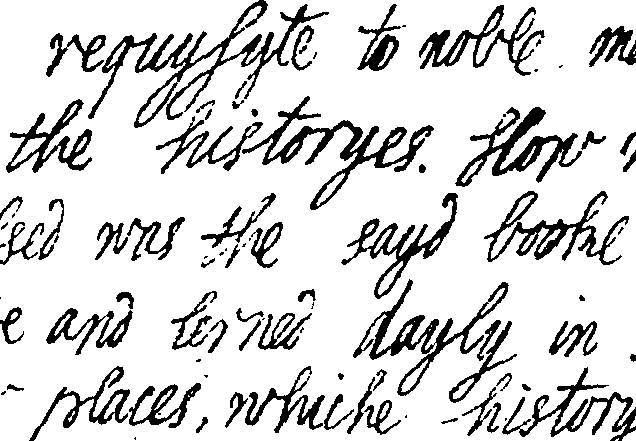 requysyte to noble
the historyes. How
was the sayd booke
and lerned dayly in
places, whiche history